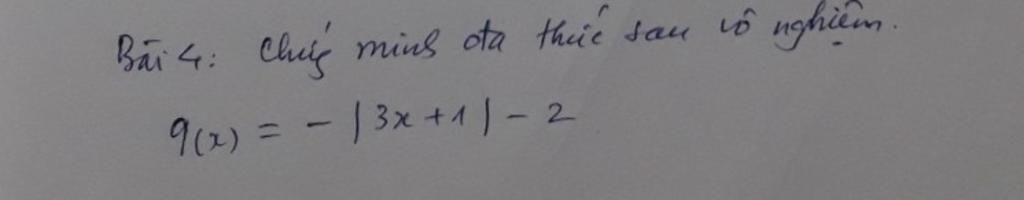 Bài 4: Chứng minh đa thức sau vô nghiệm.
q(x) = - |3x + 1| - 2